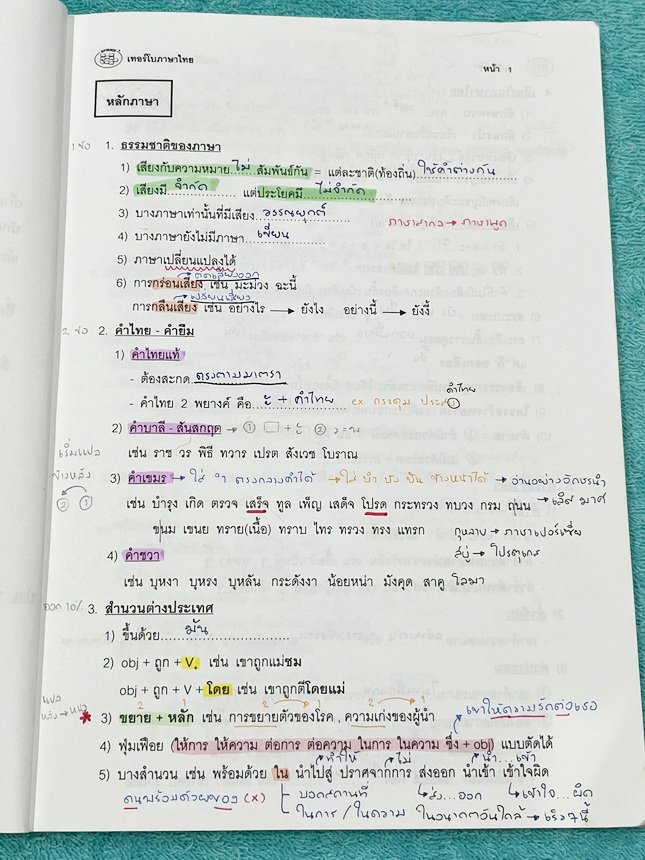 เทอร์โบภาษาไทย
หน้า 1
หลักภาษา
1 ข้อ 1. ธรรมชาติของภาษา
1) เสียงกับความหมาย..ไม่..สัมพันธ์กัน = แต่ละชาติ(ท้องถิ่น) ใช้คำต่างกัน
2) เสียงมี..จำกัด.. แต่ประโยคมี...ไม่จำกัด
3) บางภาษาเท่านั้นที่มีเสียง..วรรณยุกต์
ภาษาสากล → ภาษาพูด
4) บางภาษายังไม่มีภาษา...เขียน
5) ภาษาเปลี่ยนแปลงได้
→ ตัดเสียงออก
6) การกร่อนเสียง เช่น มะม่วง ฉะนี้
→ เปลี่ยนเสียง
การกลืนเสียง เช่น อย่างไร → ยังไง อย่างนี้ → ยังงี้
2 ข้อ 2. คำไทย - คำยืม
1) คำไทยแท้
- ต้องสะกด..ตรงตามมาตรา
คำไทย
- คำไทย 2 พยางค์ คือ...ะ + คำไทย ex. กระดุม
2) คำบาลี - สันสกฤต → ①
เช่น ราช วร พิธี ทวาร เปรต สังเวช โบราณ
เริ่มแปล
ข้างหลัง
② ①
3) คำเขมร → ใส่ ำ ตรงกลางคำได้ → ใส่ บำ บัง บัน ข้างหน้าได้ → อ่านอย่างอักษรนำ
เช่น บำรุง เกิด ตรวจ เสร็จ ทูล เพ็ญ เสด็จ โปรด กระทรวง ทบวง กรม ถนน
ขนม เขนย ทราย(เนื้อ) ทราบ ไทร ทรวง ทรง แทรก
กุหลาบ → ภาษาเปอร์เซีย
4) คำชวา
สบู่ → โปรตุเกส
เช่น บุหงา บุหรง บุหลัน กระดังงา น้อยหน่า มังคุด สาคู โลมา
ออก 10% 3. สำนวนต่างประเทศ
1) ขึ้นด้วย...มัน
2) obj + ถูก + V. เช่น เขาถูกแม่ชม
obj + ถูก + V + โดย เช่น เขาถูกตีโดยแม่
แปล
หลัง → หน้า
2 1 2 1
3) ขยาย + หลัก เช่น การขยายตัวของโรค , ความเก่งของผู้นำ
เขาให้ความรักต่อเธอ
4) ฟุ่มเฟือย (ให้การ ให้ความ ต่อการ ต่อความ ในการ ในความ ซึ่ง + obj) แบบตัดได้
→ ทำให้ → ไม่ → นำ...เข้า
5) บางสำนวน เช่น พร้อมด้วย ใน นำไปสู่ ปราศจากการ ส่งออก นำเข้า เข้าใจผิด
(×) บอกสถานที่ ส่ง...ออก เข้าใจ...ผิด
ในการ / ในความ ในอนาคตอันใกล้ → เร็วๆนี้